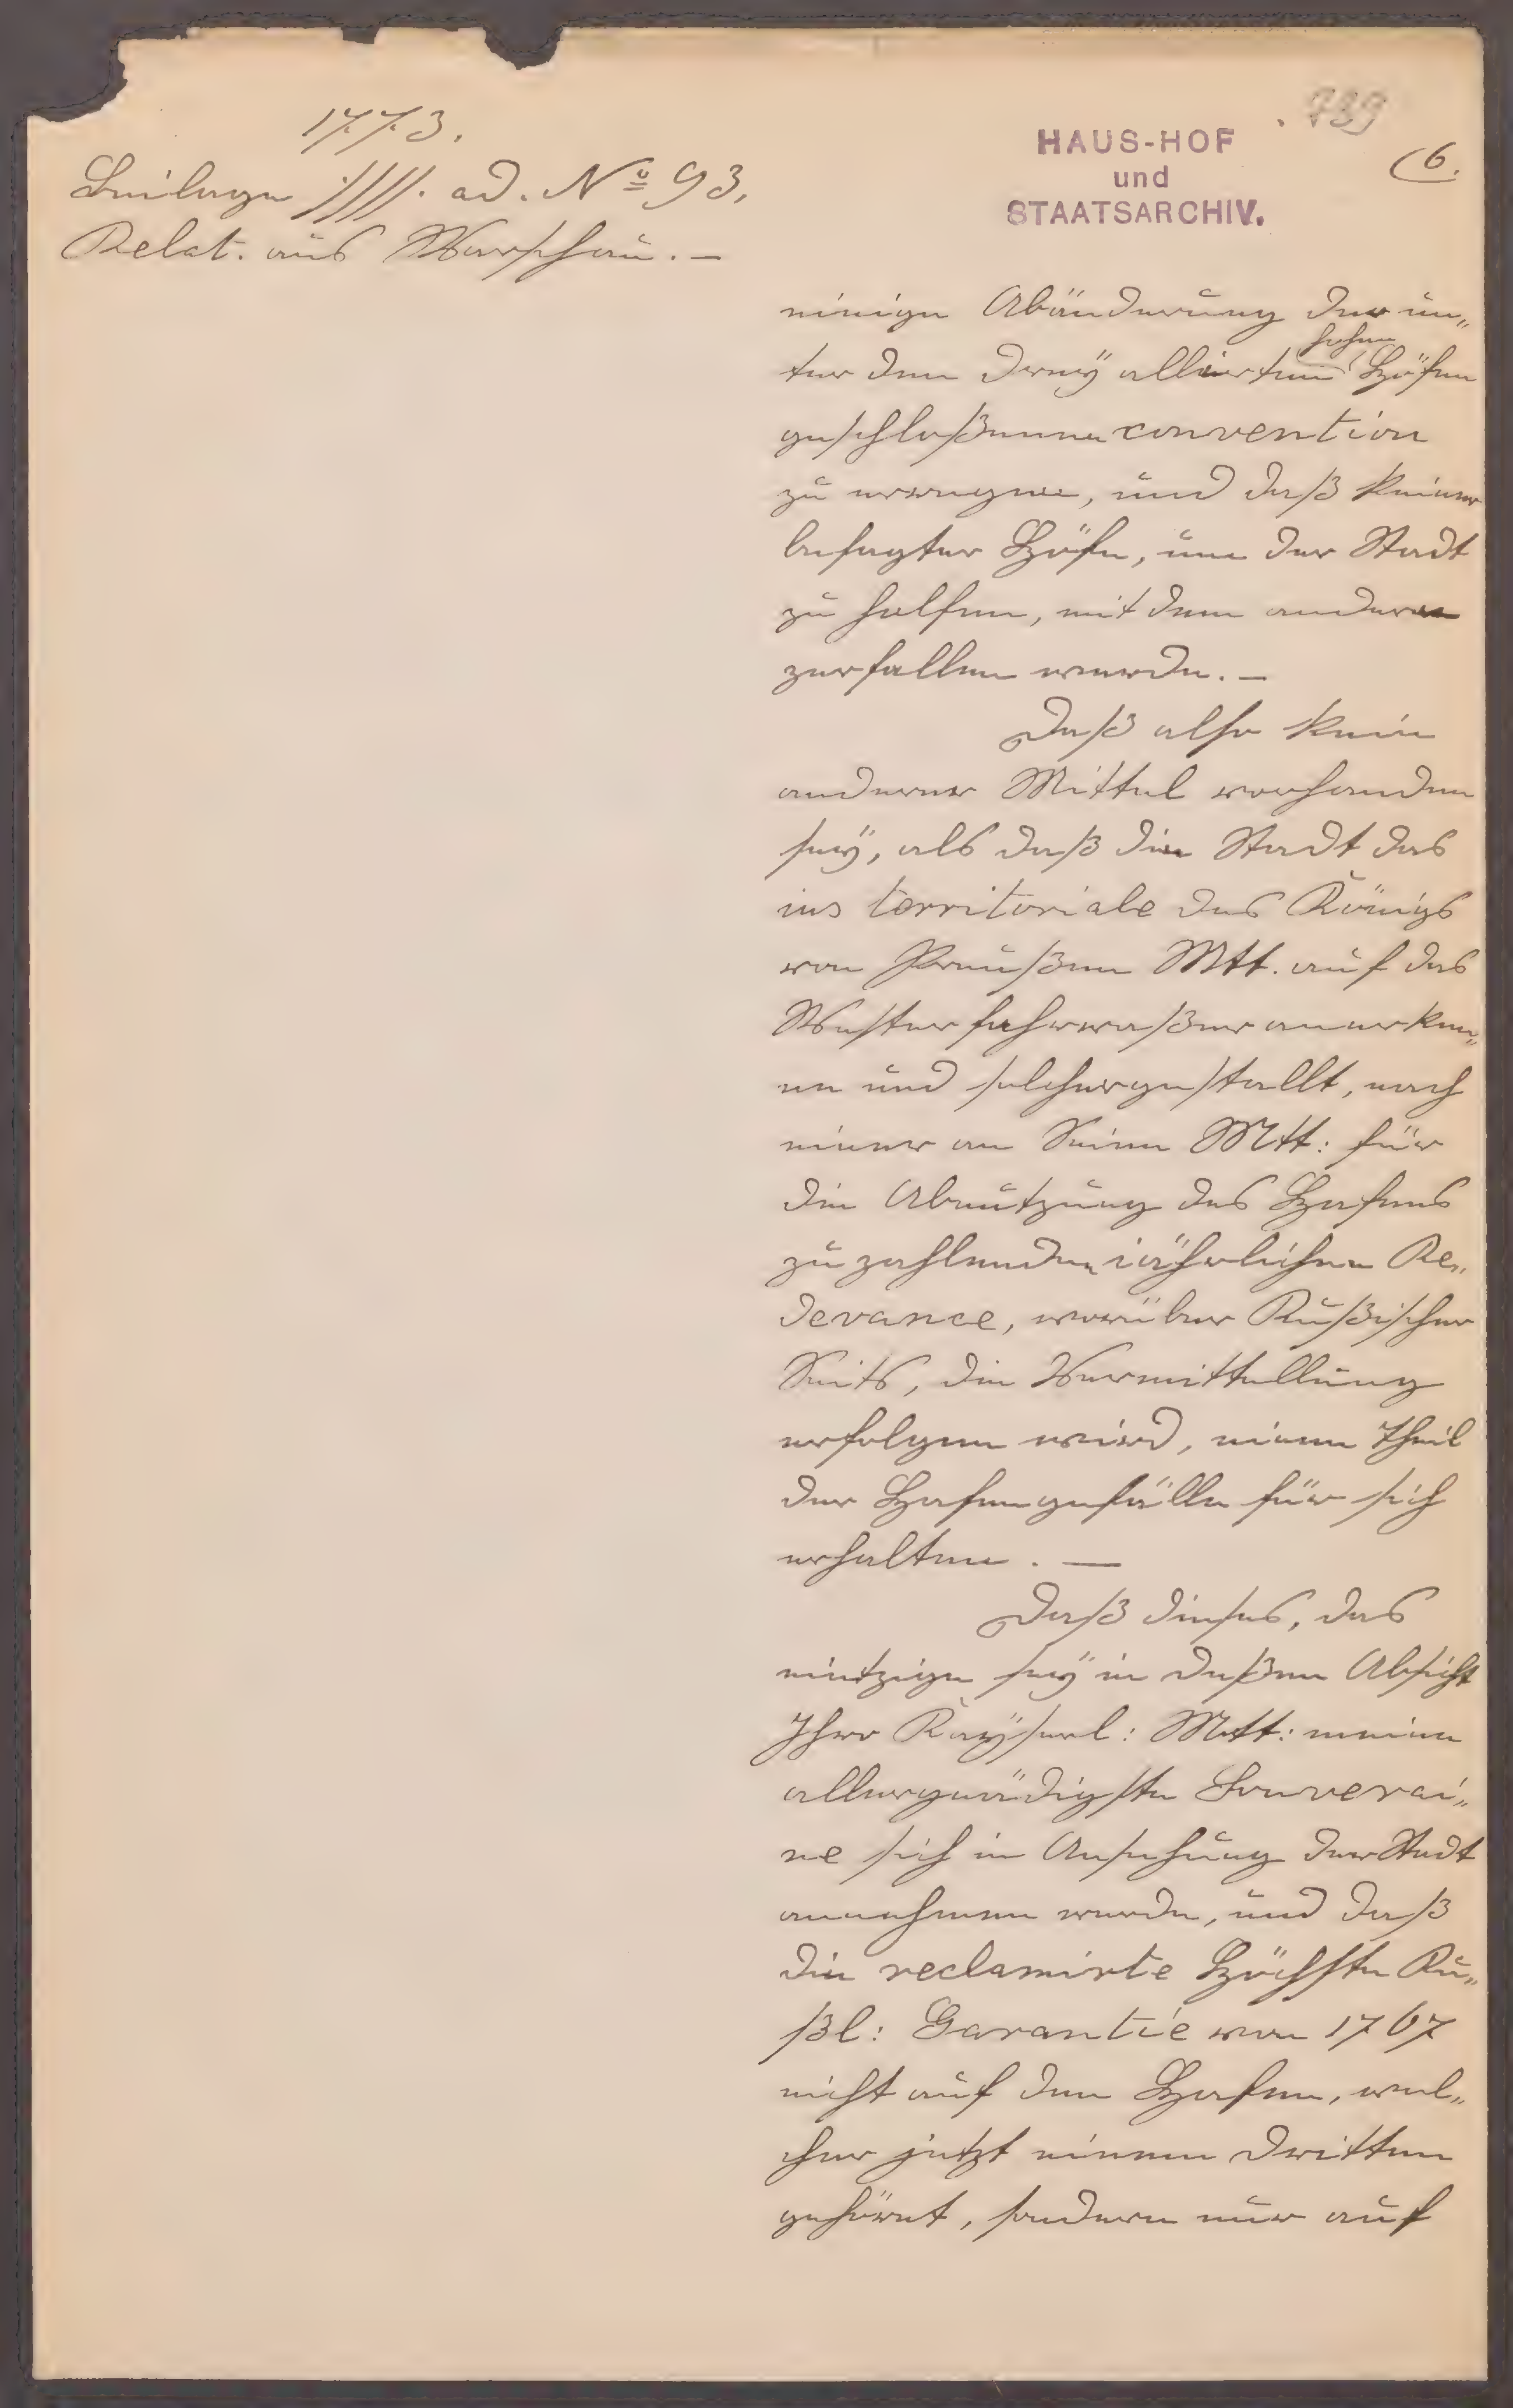 1773.
Beilage ://// ad. No 93.
Relat. aus Warschau. –
739
HAUS-HOF
und
STAATSARCHIV.
(6.
einige Abänderung der un„
ter den drey alliirten hohen Höfen
geschloßenen convention
zu erregen, und daß keiner
besagter Höfe, um der Stadt
zu helfen, mit dem andern
zerfallen werde. –
Daß also kein
anderer Mittel vorhanden
sey, als daß die Stadt das
ius territoriale des Königs
von Preußen Mtt. auf das
Westerfahrwaßer anerken„
ne und solchergestallt, nach
einer an Seine Mtt: für
die Abnützung des Hafens
zu zahlenden jährlichen Re„
devance, worüber Rußischer
Seits, die Vermittellung
erfolgen wird, einen Theil
der Hafengefälle für sich
erhalten. —
Daß dieses, das
eintzige sey in deßen Absicht
Ihro Kayserl: Mtt: meine
allergnädigste Souverai„
ne sich in Ansehung der Stadt
annehmen werde, und daß
die reclamirte Höchste Ru„
ßl: Garantie von 1767
nicht auf den Hafen, wel„
cher jetzt einem dritten
gehöret, sondern nur auf